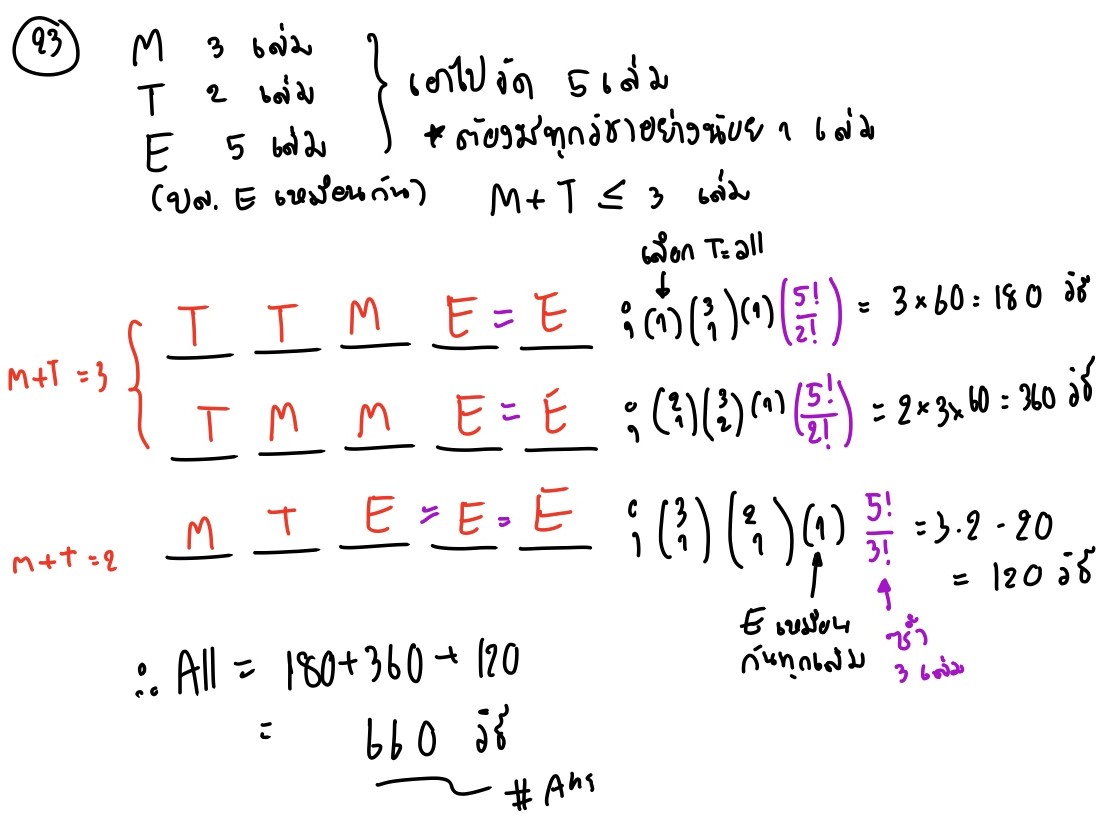 23
M 3 เล่ม
T 2 เล่ม
E 5 เล่ม
(ปล. E เหมือนกัน)
เอาไปจัด 5 เล่ม
* ต้องมีทุกวิชาอย่างน้อย 1 เล่ม
M+T ≤ 3 เล่ม
เลือก T=all
M+T=3
T T M E = E ; (1)(3 1)(1)(5!/2!) = 3×60=180 วิธี
T M M E = E ; (2 1)(3 2)(1)(5!/2!) = 2×3×60=360 วิธี
M+T=2
M T E = E = E ; (3 1)(2 1)(1) 5!/3! = 3·2·20
= 120 วิธี
E เหมือน
กันทุกเล่ม
ซ้ำ
3 เล่ม
∴ All = 180+360+120
= 660 วิธี
# Ans